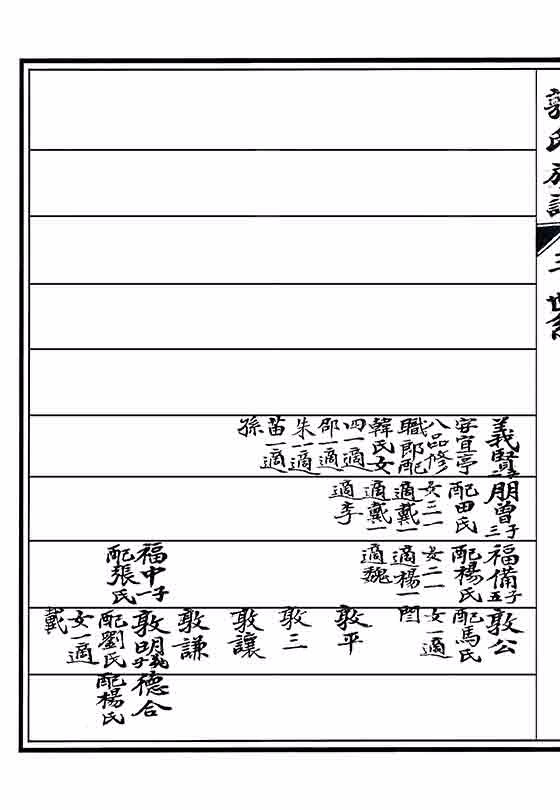 郭氏族譜 三 世系
義賢
字宜亭
八品修
職郎配
韓氏女
四一適
邵一適
朱一適
苗一適
孫
朋曾子三
配田氏
女三一
適戴一
適戴一
適李
福備子五
配楊氏
女二一
適楊一
適魏
福中子一
配張氏
敦公
配馬氏
女一適
閆
敦平
敦三
敦讓
敦謙
敦明子
配劉氏
女一適
戴
德合
配楊氏